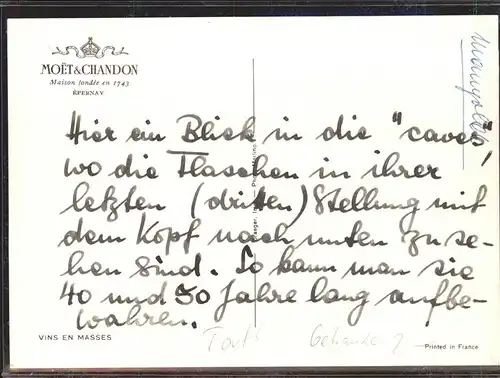 MOËT & CHANDON
Maison fondée en 1743
ÉPERNAY
Hier ein Blick in die "caves",
wo die Flaschen in ihrer
letzten (dritten) Stellung mit
dem Kopf nach unten zu se-
hen sind. So kann man sie
40 und 50 Jahre lang aufbe-
wahren.
VINS EN MASSES
Printed in France